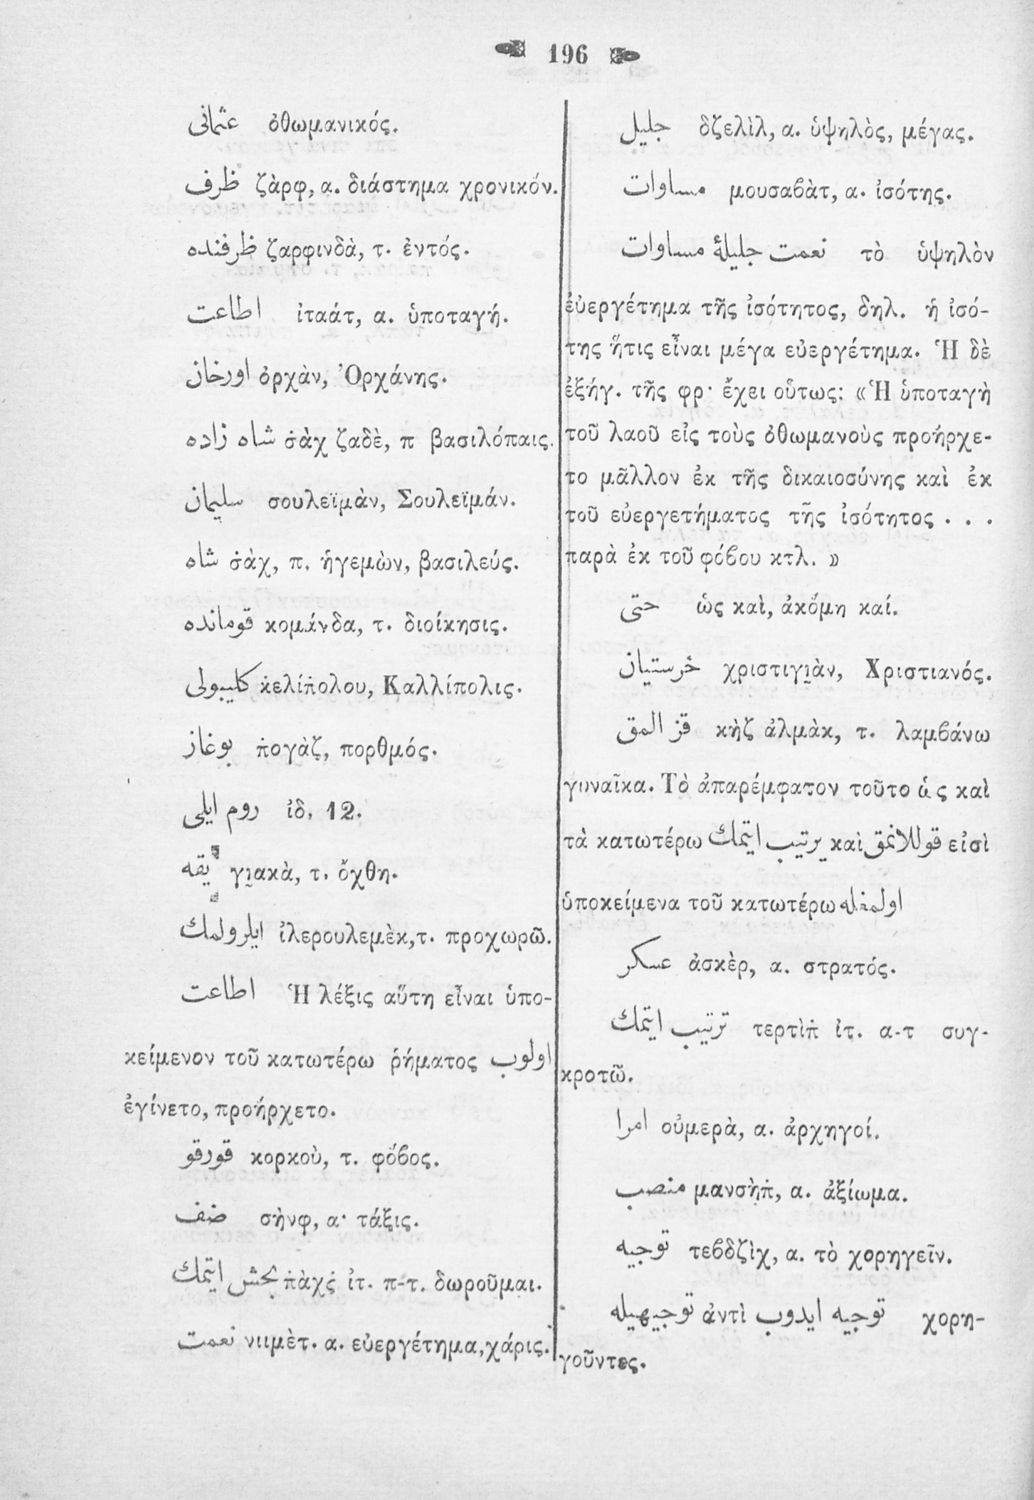 196
عثمانی ὀθωμανικός.
ظرف ζὰρφ, α. διάστημα χρονικόν.
ظرفنده ζαρφινδὰ, τ. ἐντός.
اطاعت ἰταάτ, α. ὑποταγή.
اورخان ὀρχὰν, Ὀρχάνης.
شاه زاده σ̇ὰχ ζαδὲ, π βασιλόπαις.
سلیمان σουλεϊμὰν, Σουλεϊμάν.
شاه σ̇ὰχ, π. ἡγεμὼν, βασιλεύς.
قوماندە κομάνδα, τ. διοίκησις.
كلیبولی κ̇ελίπ̇ολου, Καλλίπολις.
بوغاز π̇ογὰζ, πορθμός.
روم ایلی ἰδ. 12.
یقه γιακὰ, τ. ὄχθη.
ایلرولمك ἰλερουλεμὲκ, τ. προχωρῶ.
اطاعت Ἡ λέξις αὕτη εἶναι ὑπο-
κείμενον τοῦ κατωτέρω ῥήματος اولوب
ἐγίνετο, προήρχετο.
قورقو κορκοὺ, τ. φόβος.
صنف σὴνφ, α· τάξις.
بخش ایتمك π̇ὰχσ̇ ἰτ. π-τ. δωροῦμαι.
نعمت νιιμὲτ. α. εὐεργέτημα, χάρις.
جلیل δζελὶλ, α. ὑψηλὸς, μέγας.
مساوات μουσαβὰτ, α. ἰσότης.
نعمت جلیلۀ مساوات τὸ ὑψηλὸν
εὐεργέτημα τῆς ἰσότητος, δηλ. ἡ ἰσό-
της ἥτις εἶναι μέγα εὐεργέτημα. Ἡ δὲ
ἐξήγ. τῆς φρ· ἔχει οὕτως: «Ἡ ὑποταγὴ
τοῦ λαοῦ εἰς τοὺς ὀθωμανοὺς προήρχε-
το μᾶλλον ἐκ τῆς δικαιοσύνης καὶ ἐκ
τοῦ εὐεργετήματος τῆς ἰσότητος . . .
παρὰ ἐκ τοῦ φόβου κτλ. »
حتی ὡς καὶ, ἀκόμη καί.
خرستیان χριστιγιὰν, Χριστιανός.
قز المق κὴζ ἀλμὰκ, τ. λαμβάνω
γυναῖκα. Τὸ ἀπαρέμφατον τοῦτο ὡς καὶ
τὰ κατωτέρω ترتیب ایتمك καὶ قوللانمق εἰσὶ
ὑποκείμενα τοῦ κατωτέρω اولمغله
عسكر ἀσκὲρ, α. στρατός.
ترتیب ایتمك τερτὶπ̇ ἰτ. α-τ συγ-
κροτῶ.
امرا οὐμερὰ, α. ἀρχηγοί.
منصب μανσὴπ̇, α. ἀξίωμα.
توجیه τεβδζὶχ, α. τὸ χορηγεῖν.
توجیهیله ἀντὶ توجیه ایدوب χορη-
γοῦντες.